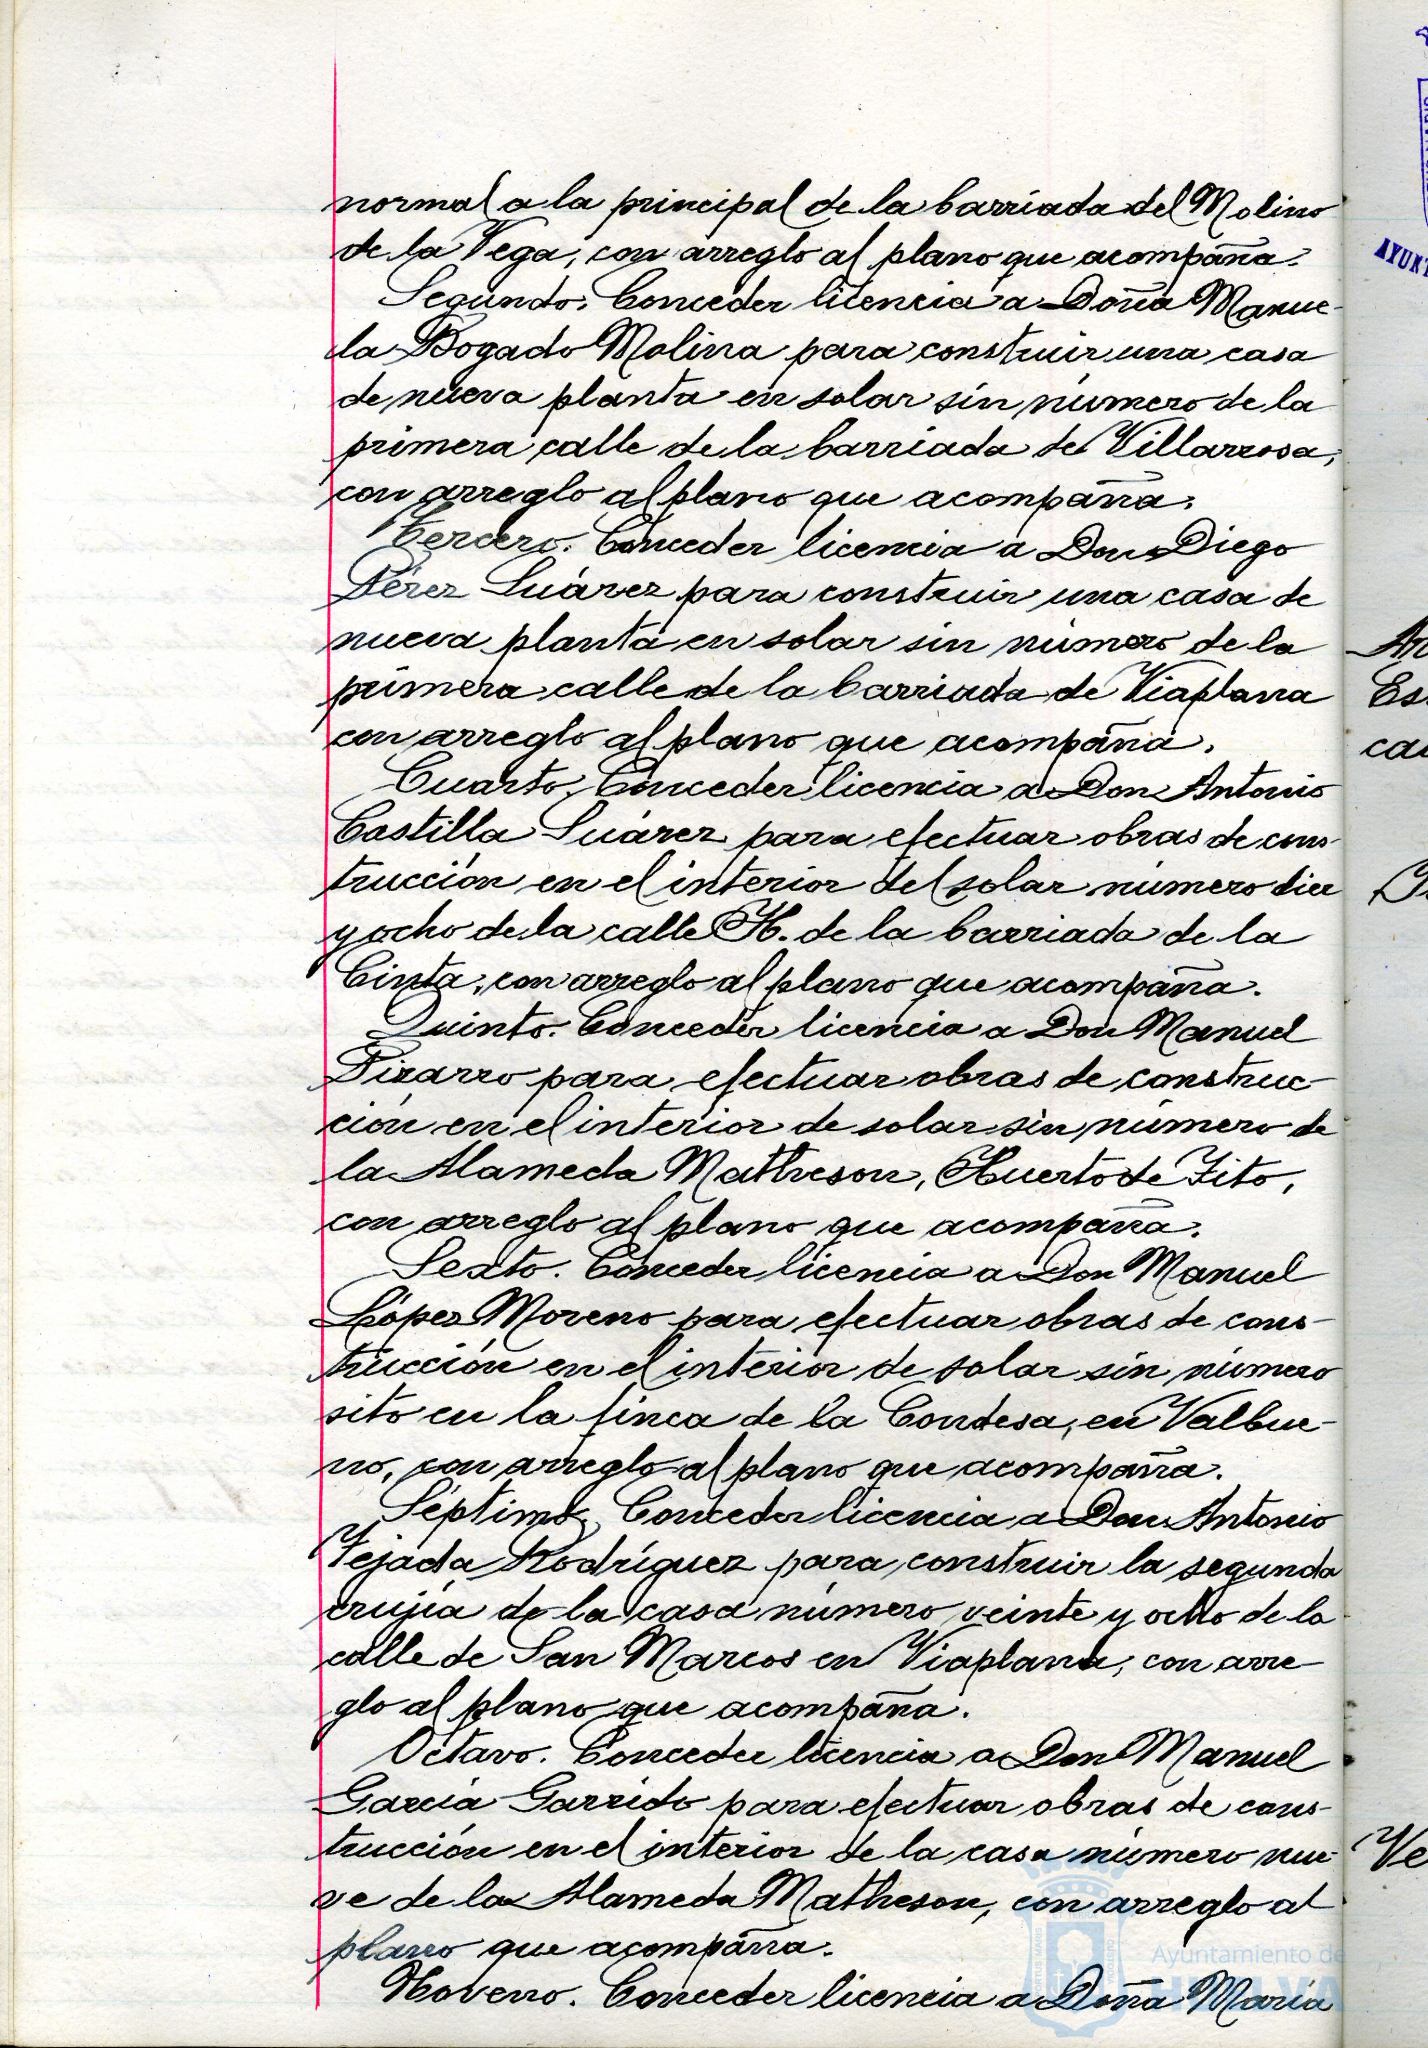 normal a la principal de la barriada del Molino
de la Vega, con arreglo al plano que acompaña.
Segundo. Conceder licencia a Doña Manue-
la Bogado Molina para construir una casa
de nueva planta en solar sin número de la
primera calle de la barriada de Villarrosa,
con arreglo al plano que acompaña.
Tercero. Conceder licencia a Don Diego
Pérez Suárez para construir una casa de
nueva planta en solar sin número de la
primera calle de la barriada de Viaplana
con arreglo al plano que acompaña.
Cuarto. Conceder licencia a Don Antonio
Castilla Suárez para efectuar obras de cons-
trucción en el interior del solar número diez
y ocho de la calle H. de la barriada de la
Cinta, con arreglo al plano que acompaña.
Quinto. Conceder licencia a Don Manuel
Pizarro para efectuar obras de construc-
ción en el interior de solar sin número de
la Alameda Matheson, Huerto de Tito,
con arreglo al plano que acompaña.
Sexto. Conceder licencia a Don Manuel
López Moreno para efectuar obras de cons-
trucción en el interior de solar sin número
sito en la finca de la Condesa, en Valbue-
no, con arreglo al plano que acompaña.
Séptimo. Conceder licencia a Don Antonio
Tejada Rodríguez para construir la segunda
crujía de la casa número veinte y ocho de la
calle de San Marcos en Viaplana, con arre-
glo al plano que acompaña.
Octavo. Conceder licencia a Don Manuel
García Garrido para efectuar obras de cons-
trucción en el interior de la casa número nue-
ve de la Alameda Matheson, con arreglo al
plano que acompaña.
Noveno. Conceder licencia a Doña María
Ayuntamiento de
HUELVA